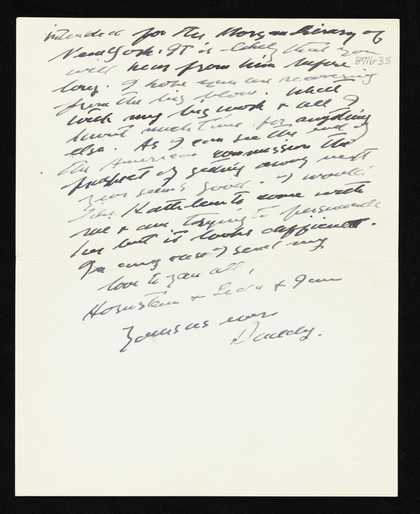 intended for the Morgan Library of
New York. It is likely that you
871635
will hear from him before
long. I hope you are recovering
from the big blow. Well
with my big work & all I
haven't much time for anything
else. As I can see the end of
the American commission the
prospect of getting away next
year seems good. I would
like Kathleen to come with
me & am trying to persuade
her but it looks difficult.
In any case I send my
love to you all,
& &
Yours as ever
Daddy.